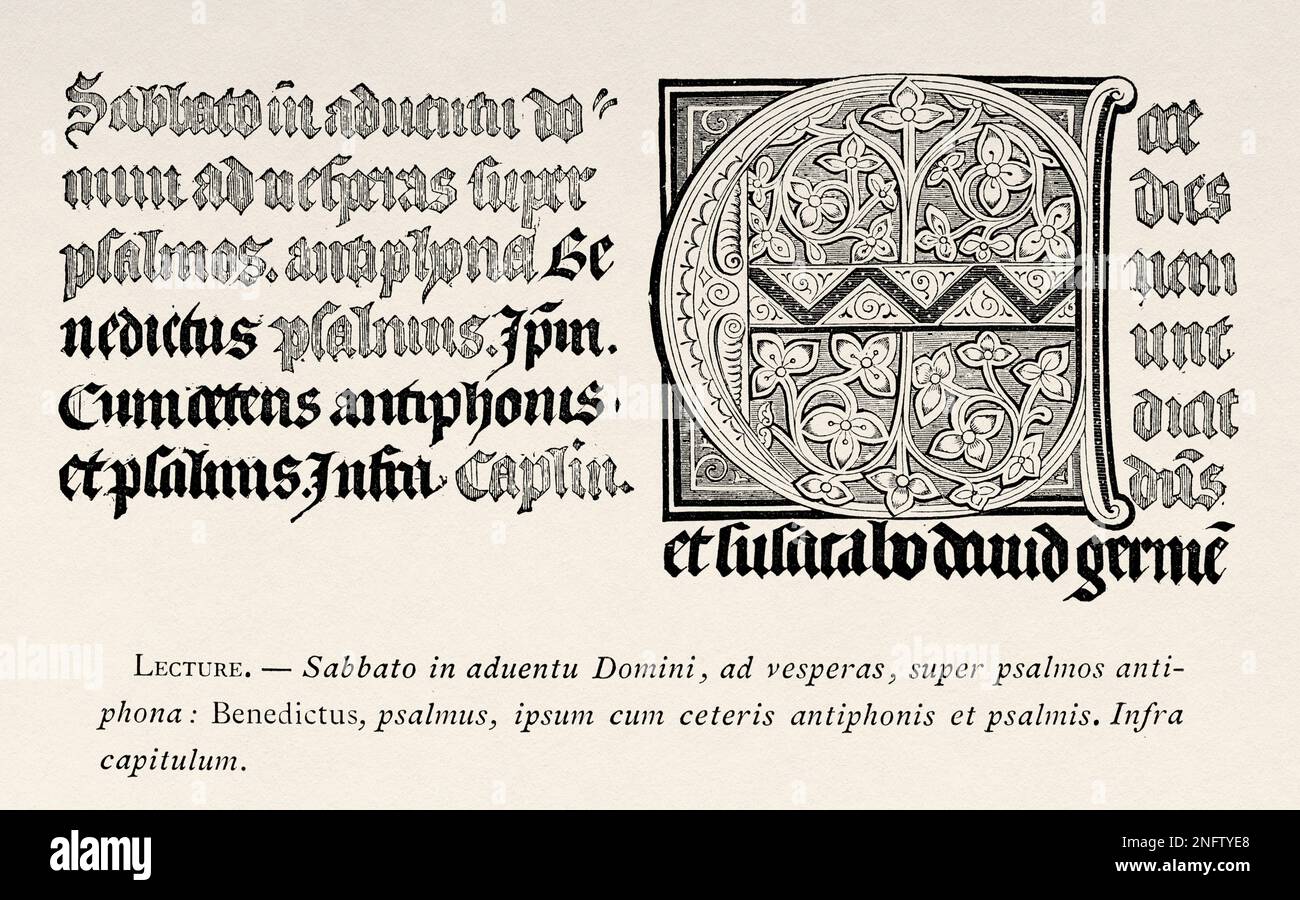 Sabbato in̄ aduentu do
mini ad uesperas super
psalmos. antiphona Be
nedictus psalmus. Ip̄m.
Cum ceteris antiphonis.
et psalmis. Infra Caplm.
Ecce
dies
ueni
unt
dicit
dn̄s
et suscitabo dauid germē
LECTURE. — Sabbato in aduentu Domini, ad vesperas, super psalmos anti-
phona : Benedictus, psalmus, ipsum cum ceteris antiphonis et psalmis. Infra
capitulum.
alamy
Image ID: 2NFTYE8
www.alamy.com